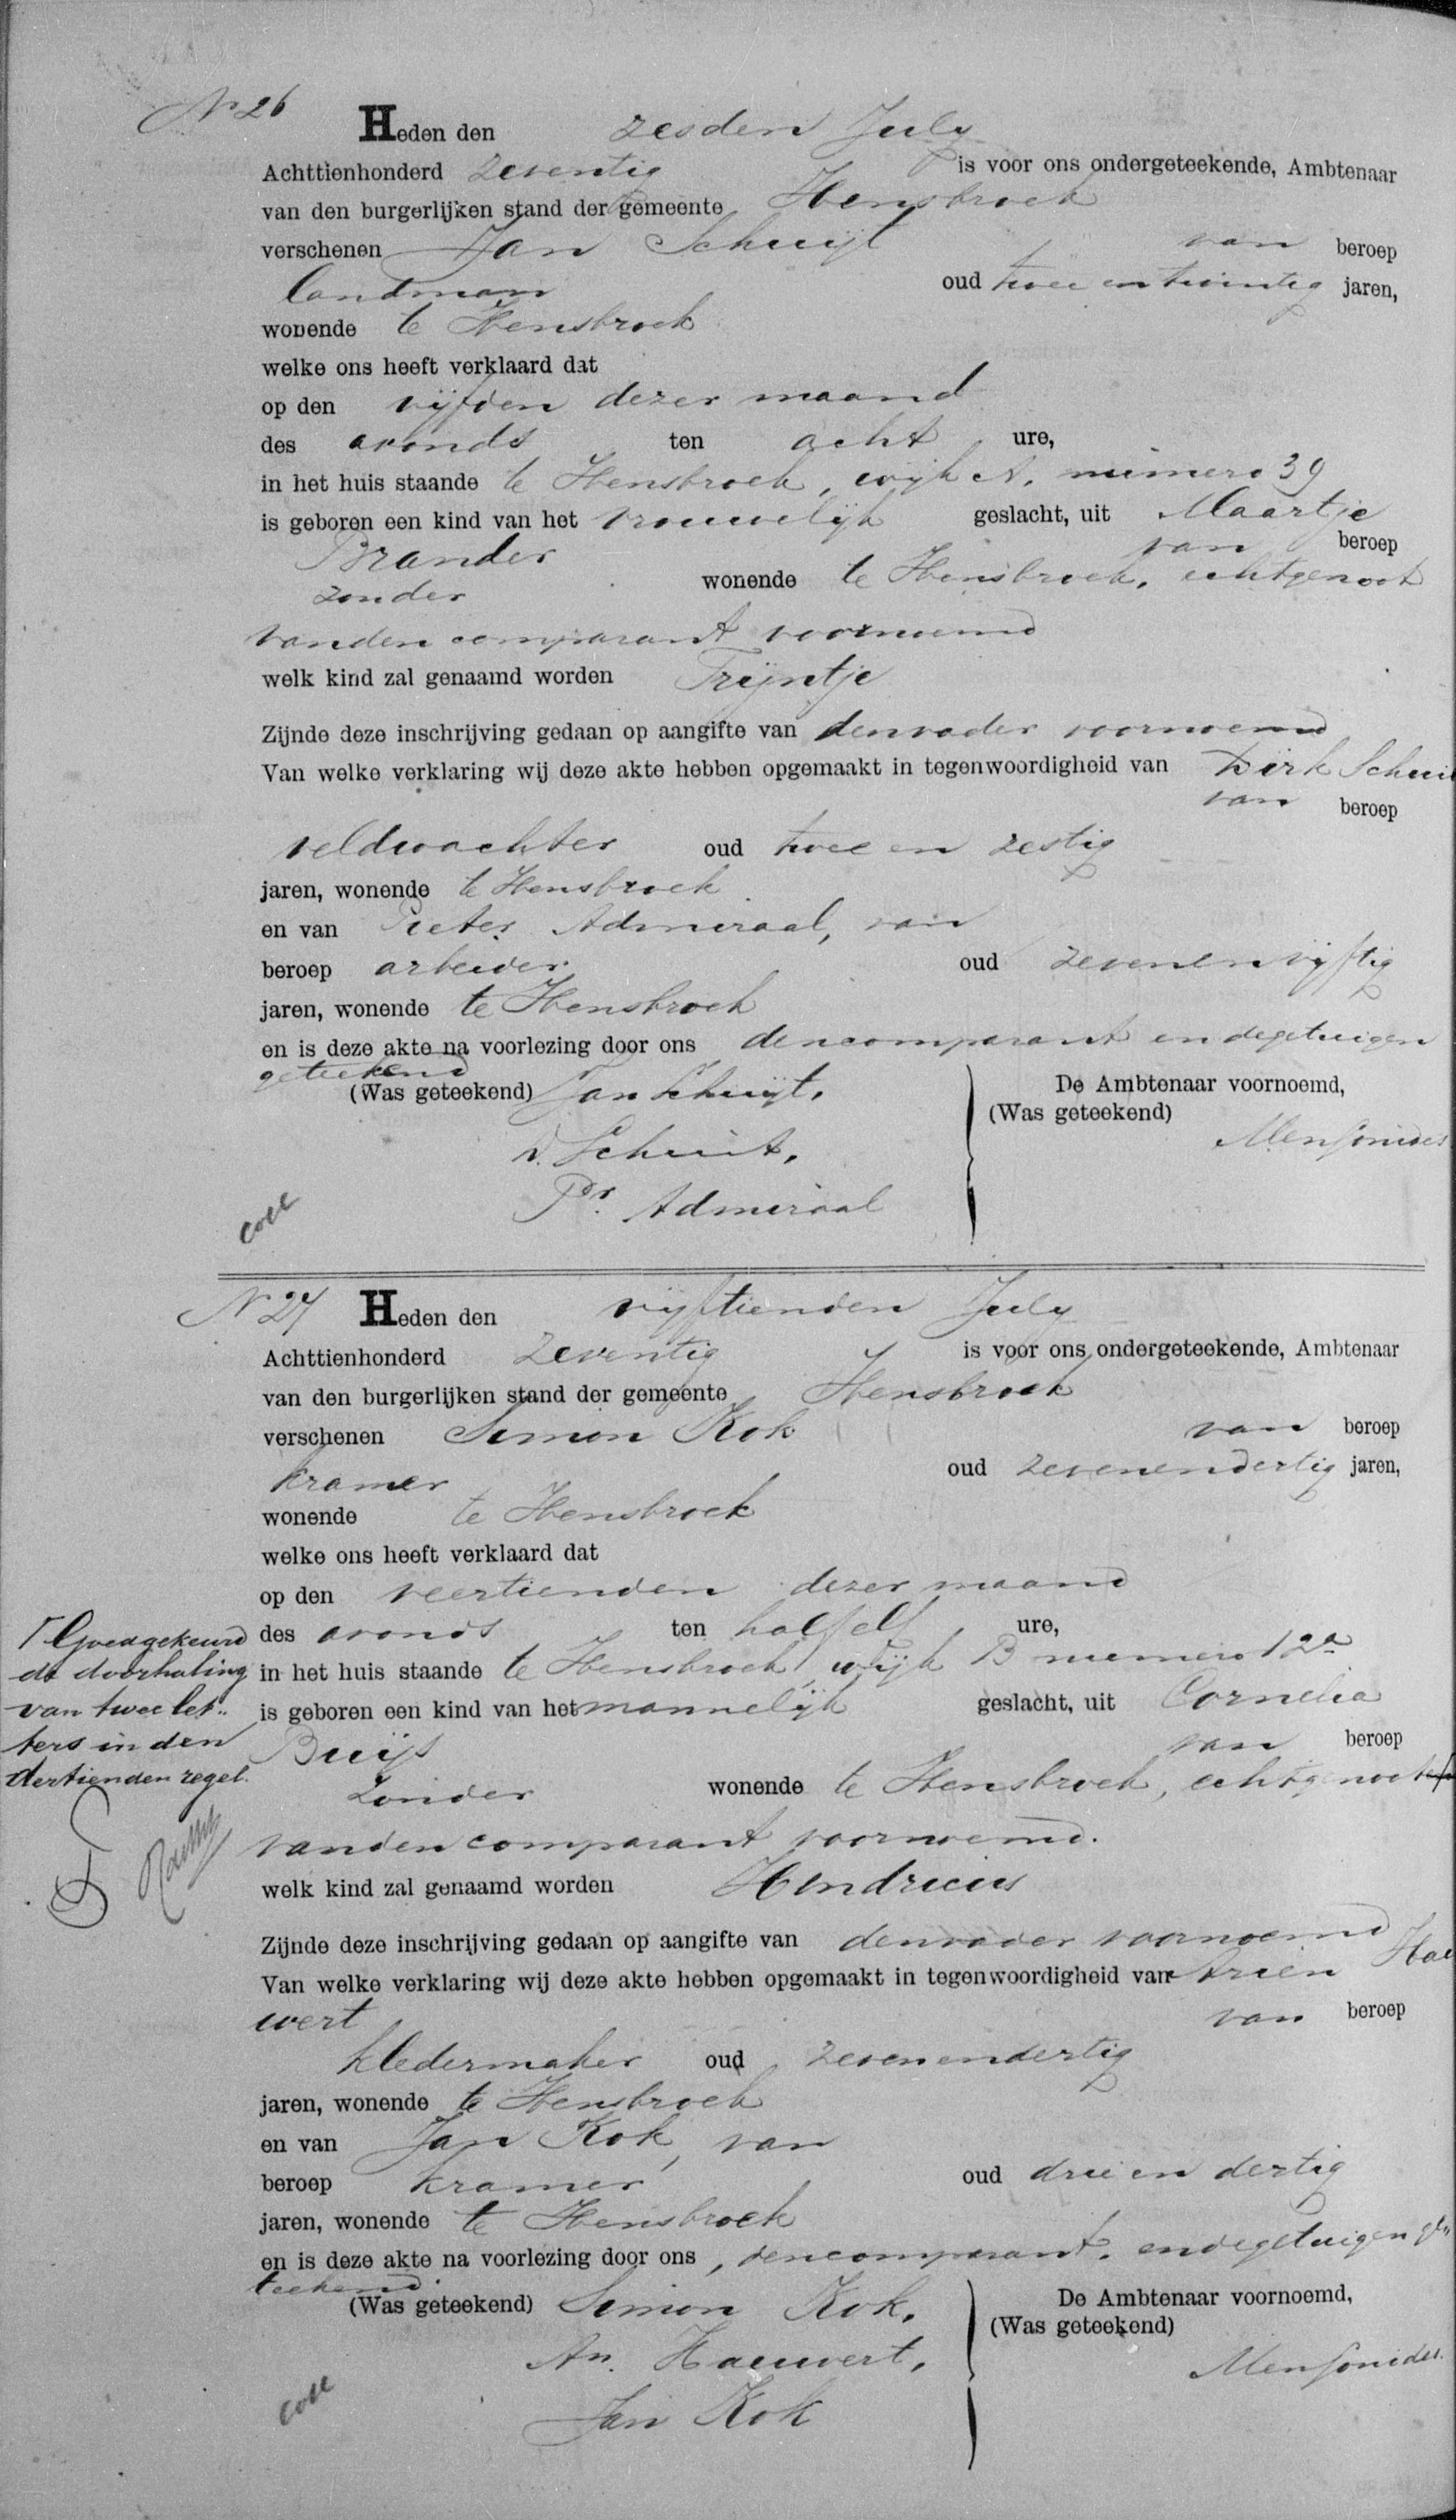 N 26
Heden den zesden July
Achttienhonderd zeventig is voor ons ondergeteekende, Ambtenaar
van den burgerlijken stand der gemeente Hensbroek
verschenen Jan Schuijt van beroep
landman oud twee en twintig jaren,
wonende te Hensbroek
welke ons heeft verklaard dat
op den vijfden dezer maand
des avonds ten acht ure,
in het huis staande te Hensbroek, wijk A. numero 39
is geboren een kind van het vrouwelijk geslacht, uit Maartje
Brander van beroep
zonder wonende te Hensbroek, echtgenoot
van den comparant voornoemd
welk kind zal genaamd worden Trijntje
Zijnde deze inschrijving gedaan op aangifte van den vader voornoemd
Van welke verklaring wij deze akte hebben opgemaakt in tegenwoordigheid van Dirk Schuit
van beroep
veldwachter oud twee en zestig
jaren, wonende te Hensbroek
en van Pieter Admiraal, van
beroep arbeider oud zevenenvijftig
jaren, wonende te Hensbroek
en is deze akte na voorlezing door ons den comparant en de getuigen
geteekend
(Was geteekend) Jan Schuijt. De Ambtenaar voornoemd,
(Was geteekend)
D. Schuit. Mensonides
Pr. Admiraal
coll
N 27 Heden den vijftienden July
Achttienhonderd zeventig is voor ons ondergeteekende, Ambtenaar
van den burgerlijken stand der gemeente Hensbroek
verschenen Simon Kok van beroep
kramer oud zevenendertig jaren,
wonende te Hensbroek
welke ons heeft verklaard dat
op den veertienden dezer maand
des avonds ten half elf ure,
in het huis staande te Hensbroek, wijk B numero 12a
is geboren een kind van het mannelijk geslacht, uit Cornelia
Buijs van beroep
zonder wonende te Hensbroek, echtgenoot
van den comparant voornoemd.
welk kind zal genaamd worden Hendricus
Γ Goedgekeurd
de doorhaling
van twee let„
ters in den
dertienden regel.
Zijnde deze inschrijving gedaan op aangifte van den vader voornoemd
Van welke verklaring wij deze akte hebben opgemaakt in tegenwoordigheid van Arien Hau
wert van beroep
kledermaker oud zevenendertig
jaren, wonende te Hensbroek
en van Jan Kok, van
beroep kramer oud drie en dertig
jaren, wonende te Hensbroek
en is deze akte na voorlezing door ons, den comparant. en de getuigen ge„
teekend.
(Was geteekend) Simon Kok. De Ambtenaar voornoemd,
(Was geteekend)
An. Hauwert. Mensonides.
Jan Kok
coll